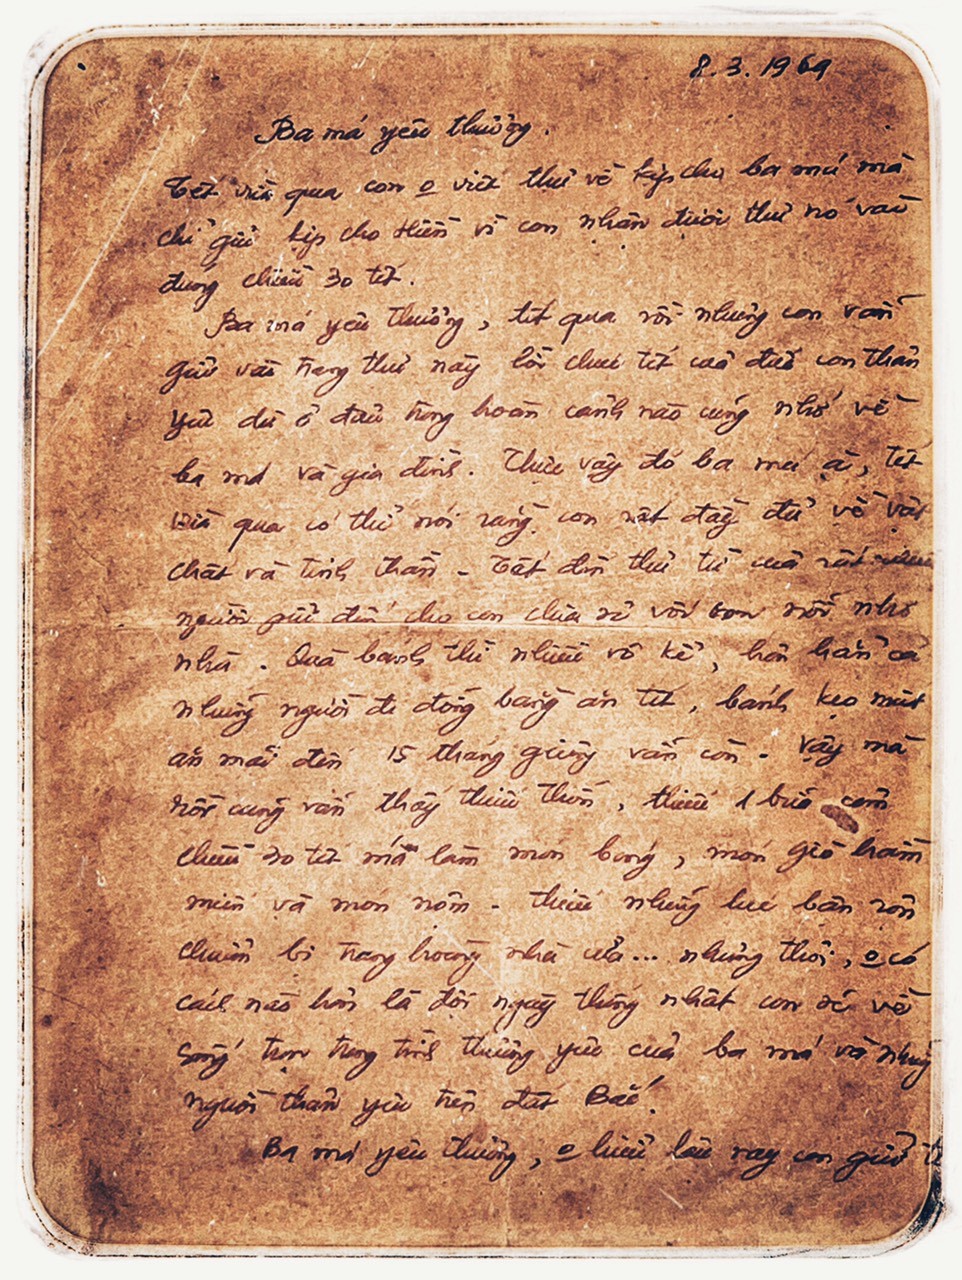 8.3.1969
Ba má yêu thương.
Tết vừa qua con o viết thư về kịp cho ba má mà
chỉ gửi kịp cho Hiền vì con nhận được thư nó vào
đúng chiều 30 tết.
Ba má yêu thương, tết qua rồi nhưng con vẫn
gửi vào trang thư này lời chúc tết của đứa con thân
yêu dù ở đâu trong hoàn cảnh nào cũng nhớ về
ba má và gia đình. Thực vậy đó ba má ạ, tết
vừa qua có thể nói rằng con rất đầy đủ về vật
chất và tinh thần - Tết đến thư từ của rất nhiều
người gửi đến cho con chia sẻ với con nỗi nhớ
nhà. Quà bánh thì nhiều vô kể, hơn hẳn cả
những người đi đồng bằng ăn tết, bánh kẹo mứt
ăn mãi đến 15 tháng giêng vẫn còn. Vậy mà
rồi cũng vẫn thấy thiếu thốn, thiếu 1 bữa cơm
chiều 30 tết má làm món bóng, món giò hầm
miến và món nộm - thiếu những lúc bận rộn
chuẩn bị trang hoàng nhà cửa... nhưng thôi, o có
cách nào hơn là đợi ngày thống nhất con sẽ về
sống trọn trong tình thương yêu của ba má và những
người thân yêu trên đất Bắc.
Ba má yêu thương, o hiểu lâu nay con gửi